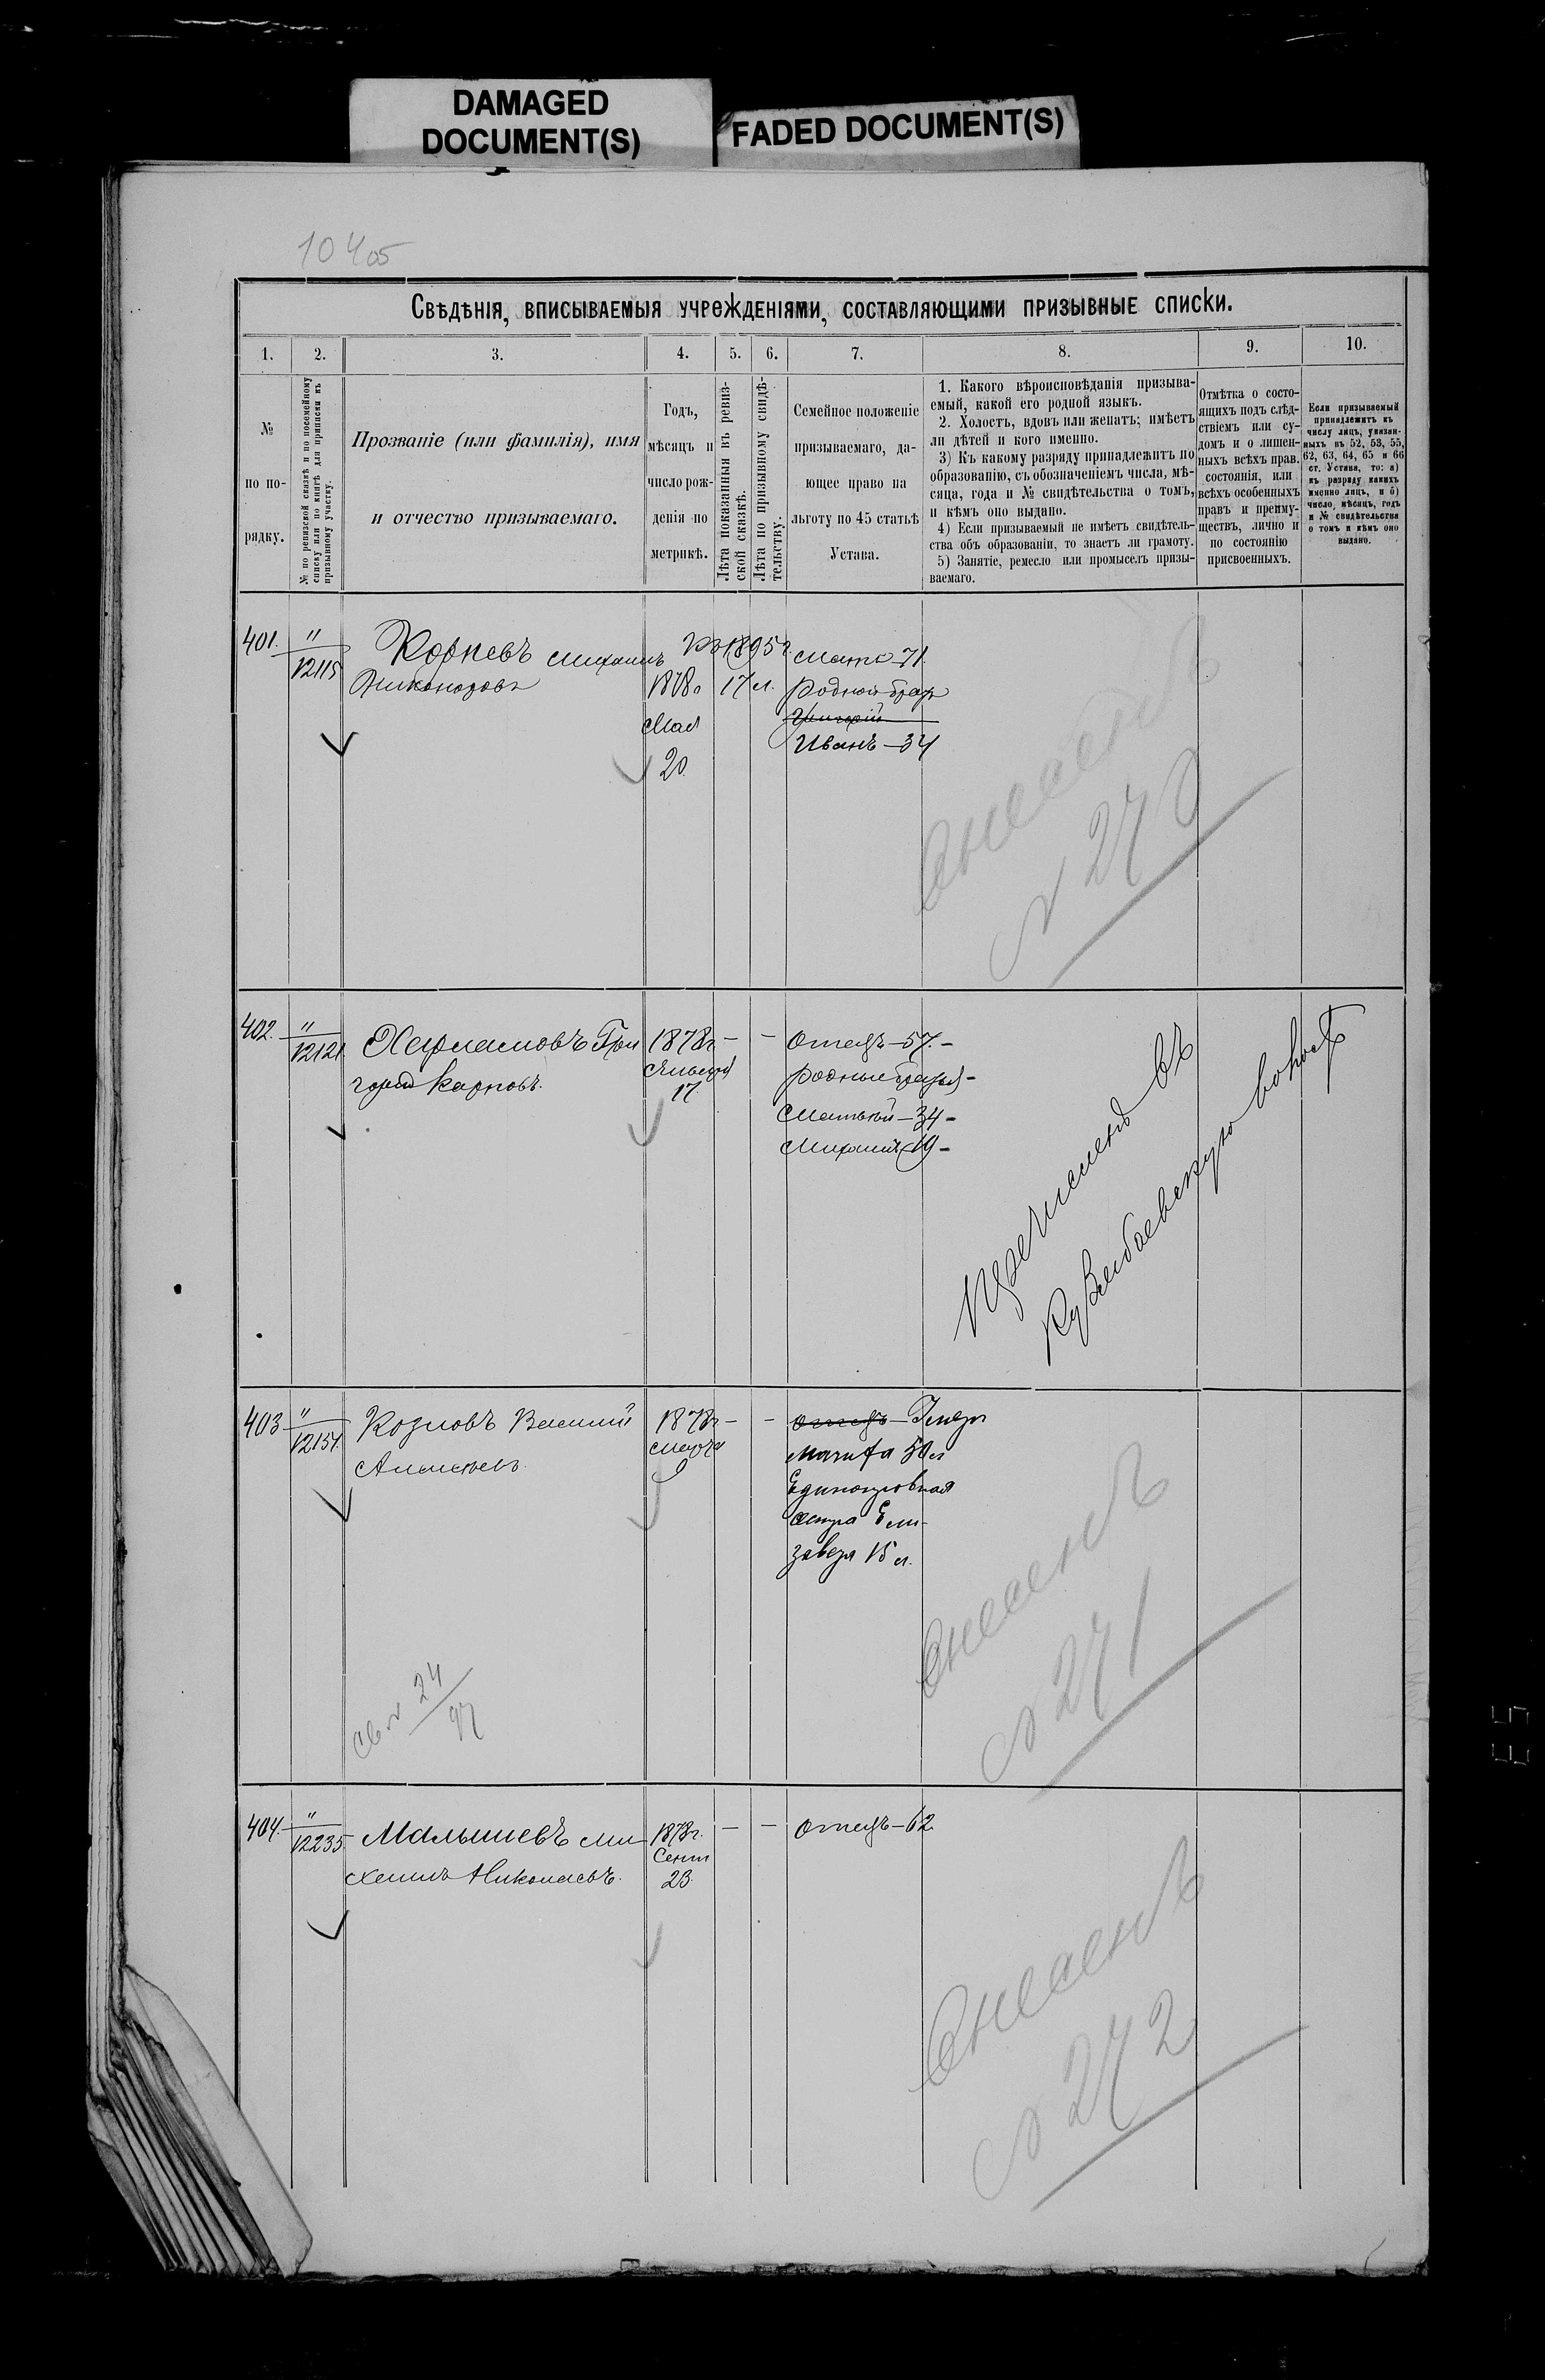 DAMAGED
DOCUMENT(S)
FADED DOCUMENT(S)
10405
Свѣдѣнія, вписываемыя учрежденіями, составляющими призывные списки.
1. 2. 3. 4. 5. 6. 7. 8. 9. 10.
№
по по-
рядку.
№ по ревизской сказкѣ и по посемейному
списку или по книгѣ для приписки къ
призывному участку.
Прозваніе (или фамилія), имя
и отчество призываемаго.
Годъ,
мѣсяцъ и
число рож-
денія по
метрикѣ.
Лѣта показанныя въ ревиз-
ской сказкѣ.
Лѣта по призывному свидѣ-
тельству.
Семейное положеніе
призываемаго, да-
ющее право на
льготу по 45 статьѣ
Устава.
1. Какого вѣроисповѣданія призыва-
емый, какой его родной языкъ.
2. Холостъ, вдовъ или женатъ; имѣетъ
ли дѣтей и кого именно.
3) Къ какому разряду принадлежитъ по
образованію, съ обозначеніемъ числа, мѣ-
сяца, года и № свидѣтельства о томъ,
и кѣмъ оно выдано.
4) Если призываемый не имѣетъ свидѣтель-
ства объ образованіи, то знаетъ ли грамоту.
5) Занятіе, ремесло или промыселъ призы-
ваемаго.
Отмѣтка о состо-
ящихъ подъ слѣд-
ствіемъ или су-
домъ и о лишен-
ныхъ всѣхъ прав.
состоянія, или
всѣхъ особенныхъ
правъ и преиму-
ществъ, лично и
по состоянію
присвоенныхъ.
Если призываемый
принадлежитъ къ
числу лицъ, указан-
ныхъ въ 52, 53, 55,
62, 63, 64, 65 и 66
ст. Устава, то: а)
къ разряду какихъ
именно лицъ, и б)
число, мѣсяцъ, годъ
и № свидѣтельства
о томъ и кѣмъ оно
выдано.
401. "
12115
Корневъ Михаилъ
Никоноровъ
1895 г.
1878 г
Мая
20
17 л.
Мать 71.
родной братъ
Григорій
Иванъ — 34
Внесенъ
№ 270
402. "
12121
Харламовъ Гри
горій Карповъ.
1878 г
Января
17.
— —
Отецъ — 57. —
родные братья —
Матвѣй — 34 —
Михаилъ 19 —
Пречисленъ въ
волость
403 "
12151.
Козловъ Василій
Алексѣевъ
1878 г
Марта
9
— —
отецъ —
50 л
Единокровная
сестра Ели-
завета 15 л.
Св № 24
97
Внесенъ
№ 271
404. "
12235.
Малышевъ Ми
хаилъ Николаевъ.
1878 г.
Сент
23.
— —
Отецъ — 62
Внесенъ
№ 272